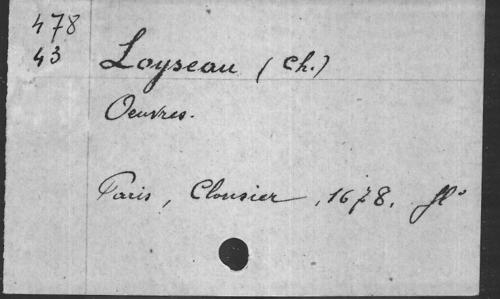 478
43
Loyseau (Ch.)
Oeuvres.
Paris, Clousier, 1678. fl°